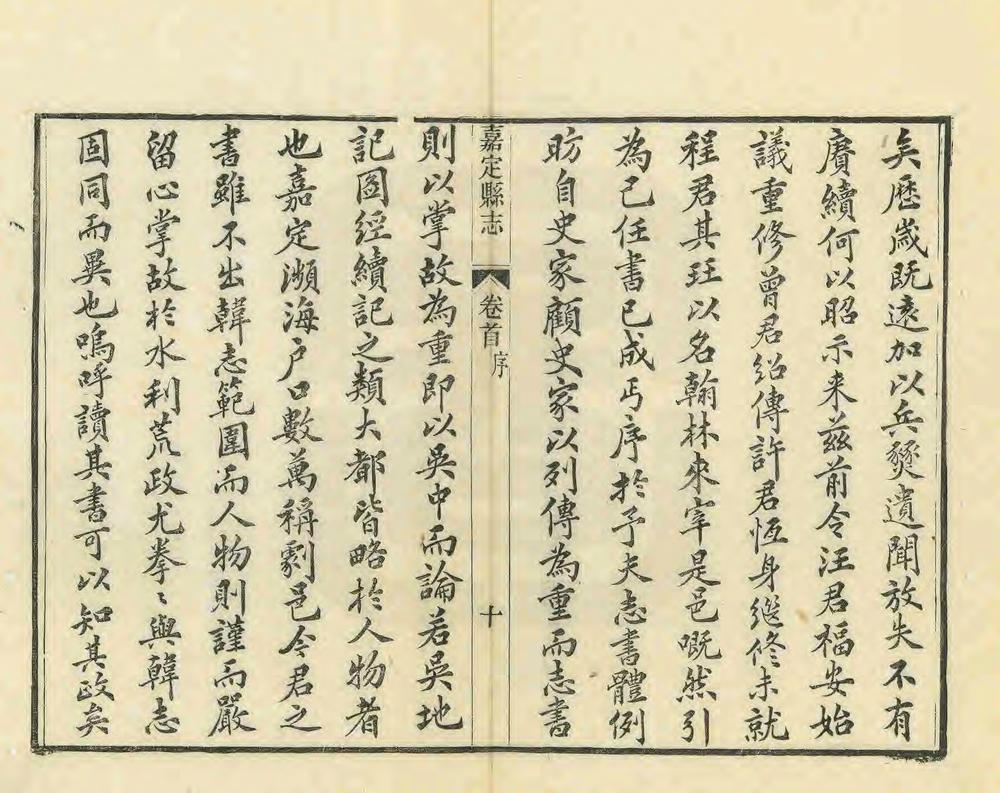 矣歷歲既遠加以兵燹遺聞放失不有
賡續何以昭示来茲前令汪君福安始
議重修曾君紹傳許君恆身繼修未就
程君其珏以名翰林來宰是邑慨然引
為己任書已成丐序於予夫志書體例
昉自史家顧史家以列傳為重而志書
嘉定縣志
卷首
序
十
則以掌故為重即以吳中而論若吳地
記圖經續記之類大都皆略於人物者
也嘉定瀕海戶口數萬稱劇邑今君之
書雖不出韓志範圍而人物則謹而嚴
留心掌故於水利荒政尤拳〻與韓志
固同而異也嗚呼讀其書可以知其政矣